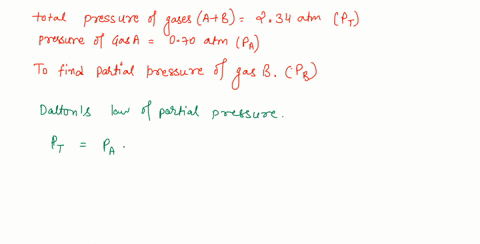 total pressure of gases (A+B) = 2.34 atm (PT)
pressure of Gas A = 0.70 atm (PA)
To find partial pressure of gas B. (PB)
Dalton's law of partial pressure.
PT = PA .